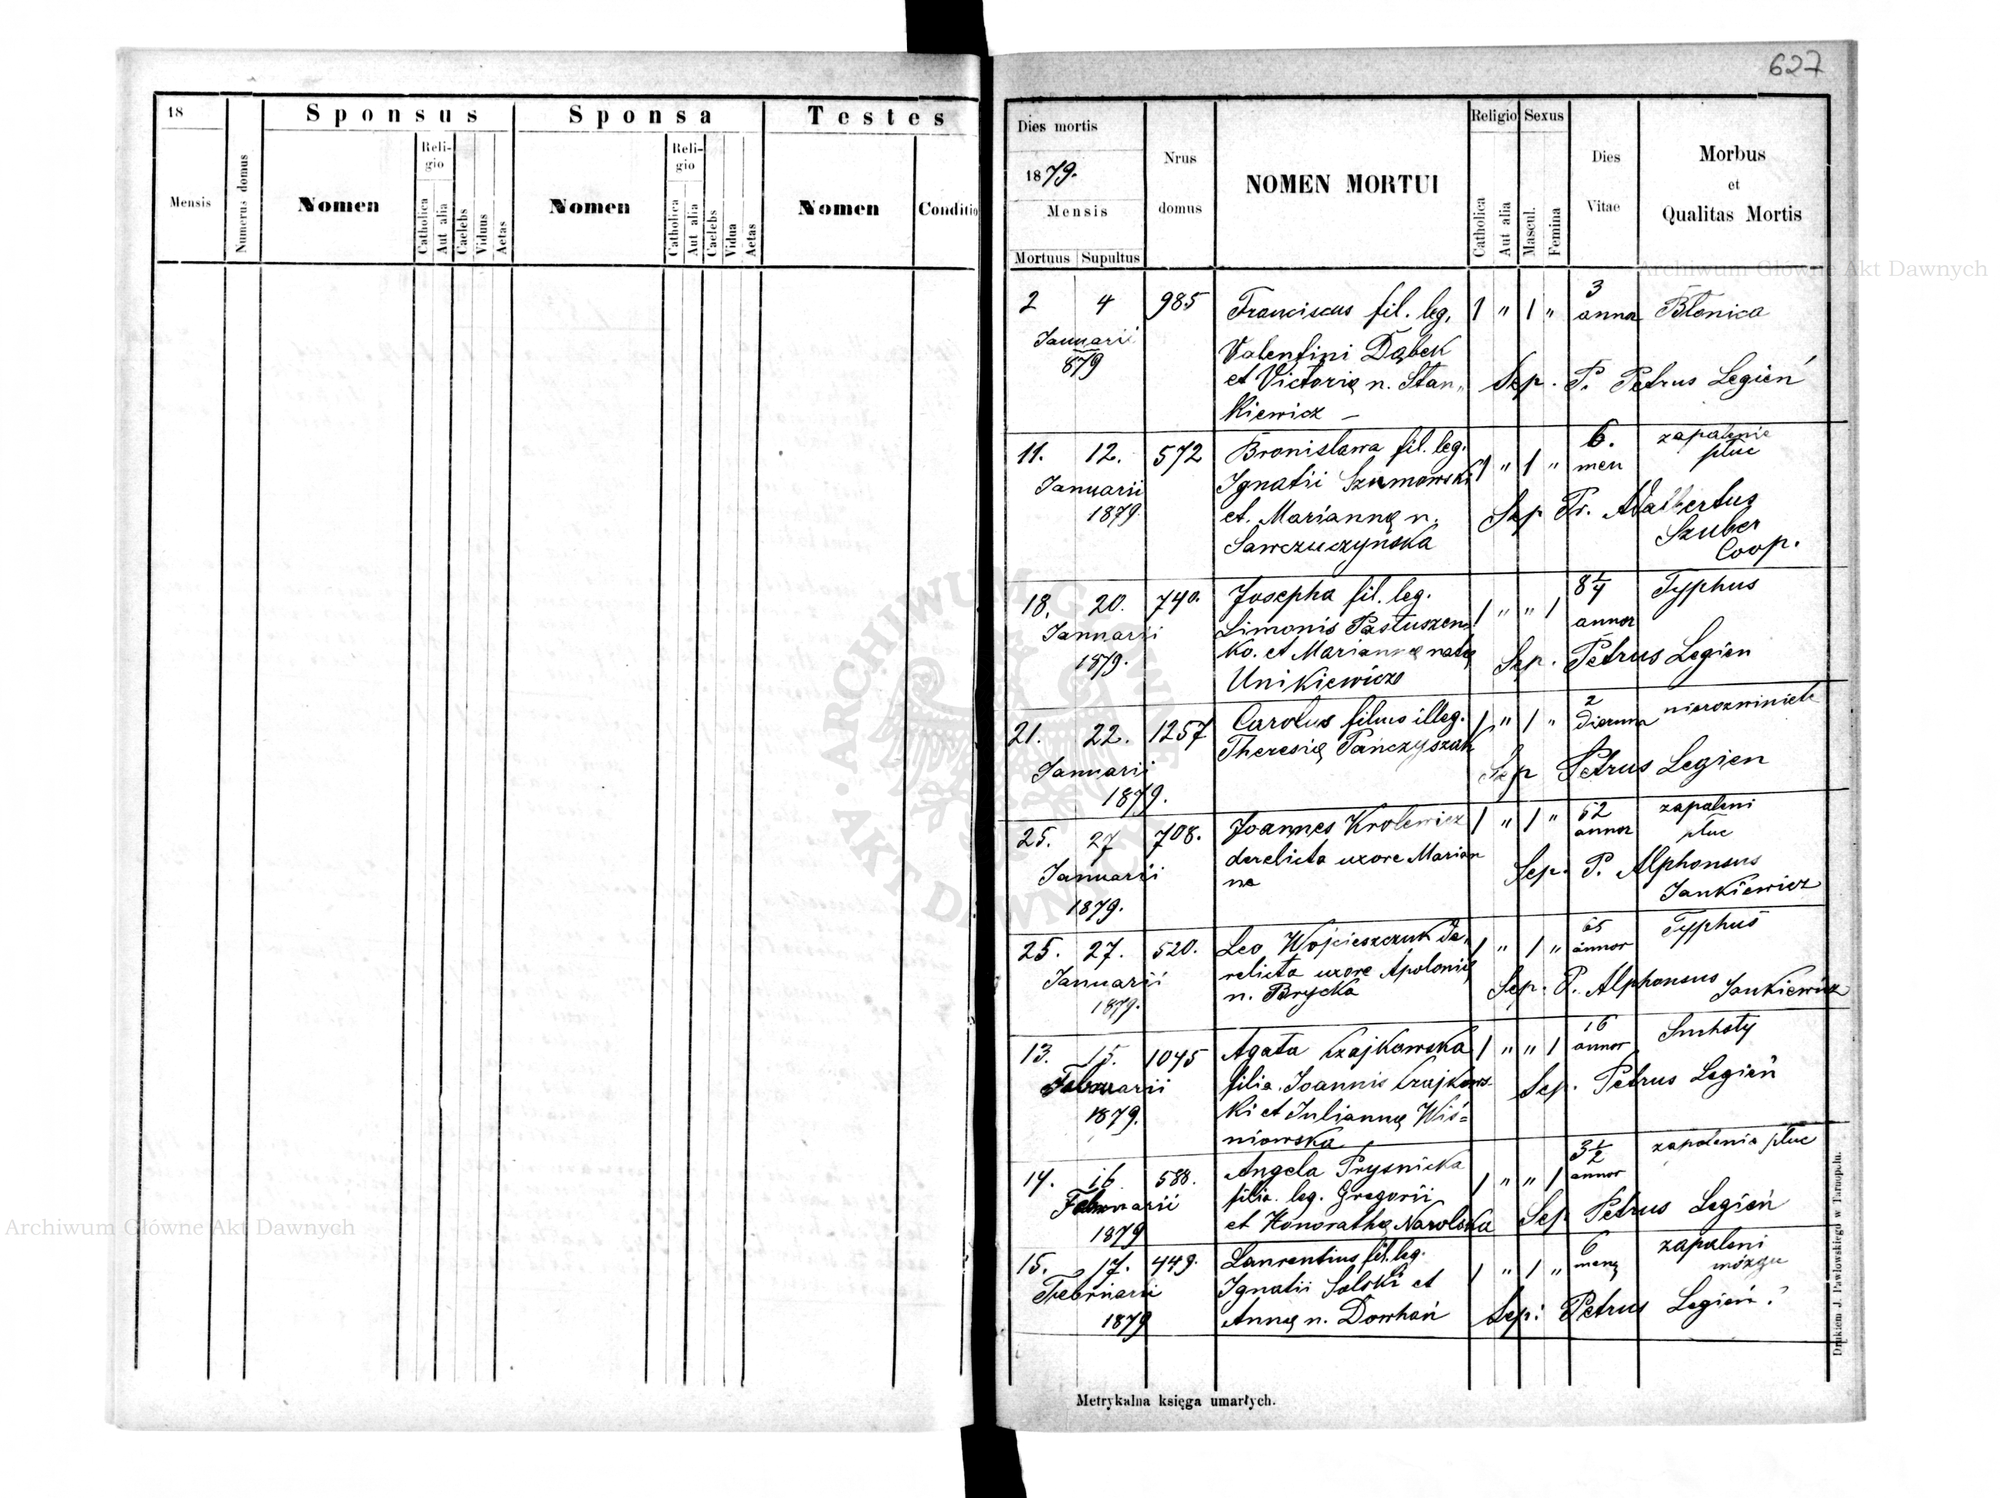 627
18
Sponsus
Sponsa
Testes
Mensis
Numerus domus
Nomen
Reli-
gio
Catholica
Aut alia
Caelebs
Viduus
Aetas
Nomen
Reli-
gio
Catholica
Aut alia
Caelebs
Vidua
Aetas
Nomen
Conditio
Dies mortis
1879.
Mensis
Mortuus
Supultus
Nrus
domus
NOMEN MORTUI
Religio
Catholica
Aut alia
Sexus
Mascul.
Femina
Dies
Vitae
Morbus
et
Qualitas Mortis
2 4 985 Franciscus fil. leg. 1 " 1 " 3 annor Błonica
Januarii
879
Valentini Dąbek
et Victorię n. Stan„
kiewicz –
Sep. P. Petrus Legień
11. 12. 572 Bronislawa fil. leg. 1 " 1 " 6. men zapalenie
płuc
Januarii
1879.
Ignatii Szumowski
et Mariannę n.
Sawczuczyńska
Sep Fr. Adalbertus
Szuber
Coop.
18. 20. 740. Josepha fil. leg. 1 " " 1 8 1/4 annor Typhus
Januarii
1879.
Simonis Pastuszen„
ko. et Mariannę natę
Unikiewicz
Sep. Petrus Legien
21. 22. 1257 Carolus filius illeg. 1 " 1 " 2 dierum
Januarii
1879.
Theresię Pańczyszak
Sep Petrus Legien
25. 27 708. Joannes Krolewicz 1 " 1 " 52 annor zapaleni
płuc
Januarii
1879.
derelicta uxore Marian
na
Sep. P. Alphonsus
Jankiewicz
25. 27. 520. Leo Wojcieszczuk de„ 1 " 1 " 65 annor Typhus
Januarii
1879.
relicta uxore Apolonię
n. Brycka
Sep. P. Alphonsus Jankiewicz
13. 15. 1045 Agata Czajkowska 1 " " 1 16 annor Suchoty
Februarii
1879.
filia. Joannis Czajkows-
ki et Juliannę Wiś=
niowska
Sep. Petrus Legień
14. 16 588. Angela Prysnicka 1 " " 1 3 1/2 annor zapalenie płuc
Februarii
1879
filia. leg. Gregorii
et Honorathę Narolska
Sep Petrus Legień
15. 17. 449. Laurentius fil. leg. 1 " 1 " 6 zapaleni
mózgu
Februarii
1879
Ignatii Solski et
Annę n. Dowhań
Sep: Petrus Legień.
Metrykalna księga umarłych.
Drukiem J. Pawłowskiego w Tarnopolu.
Archiwum Główne Akt Dawnych
Archiwum Główne Akt Dawnych
ARCHIWUM GŁÓWNE AKT DAWNYCH